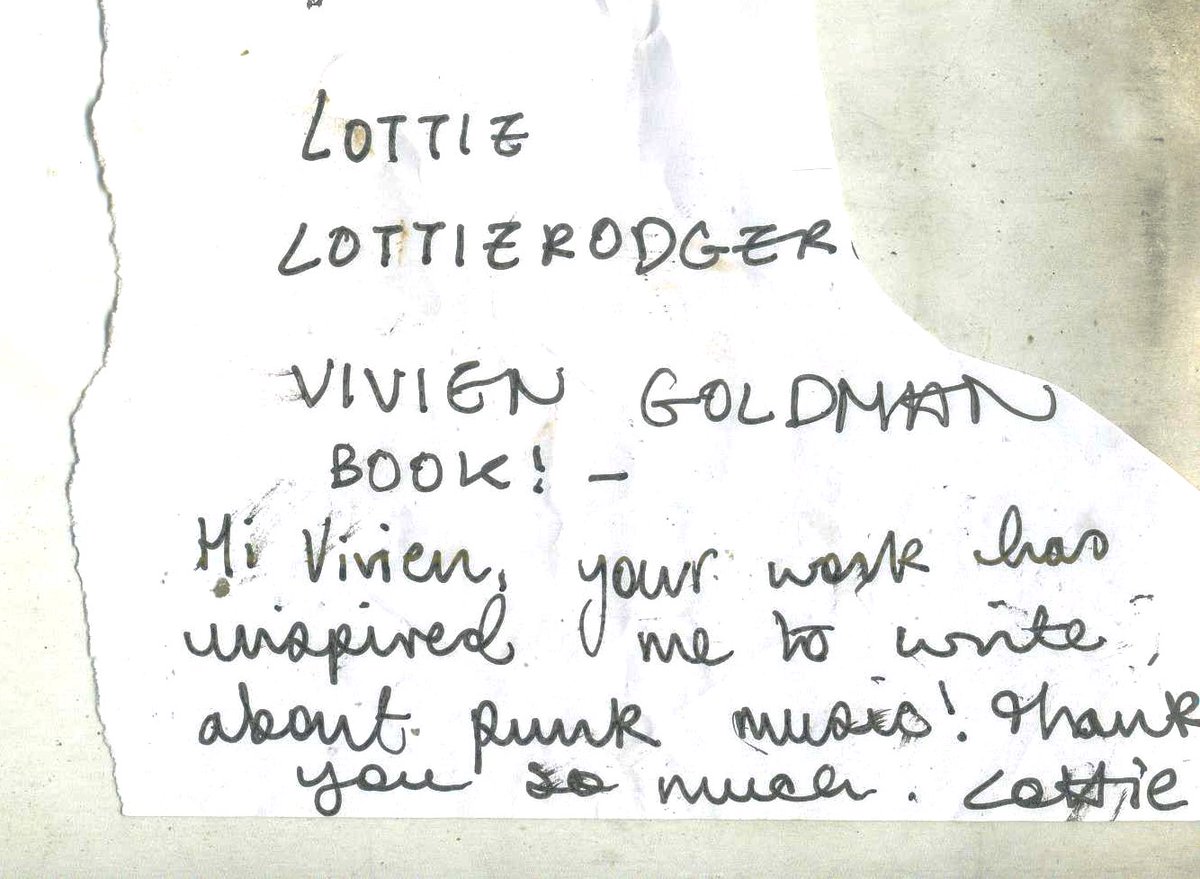 LOTTIE
LOTTIERODGER
VIVIEN GOLDMAN
BOOK! –
Hi Vivien, your work has
inspired me to write
about punk music! Thank
you so much. Lottie